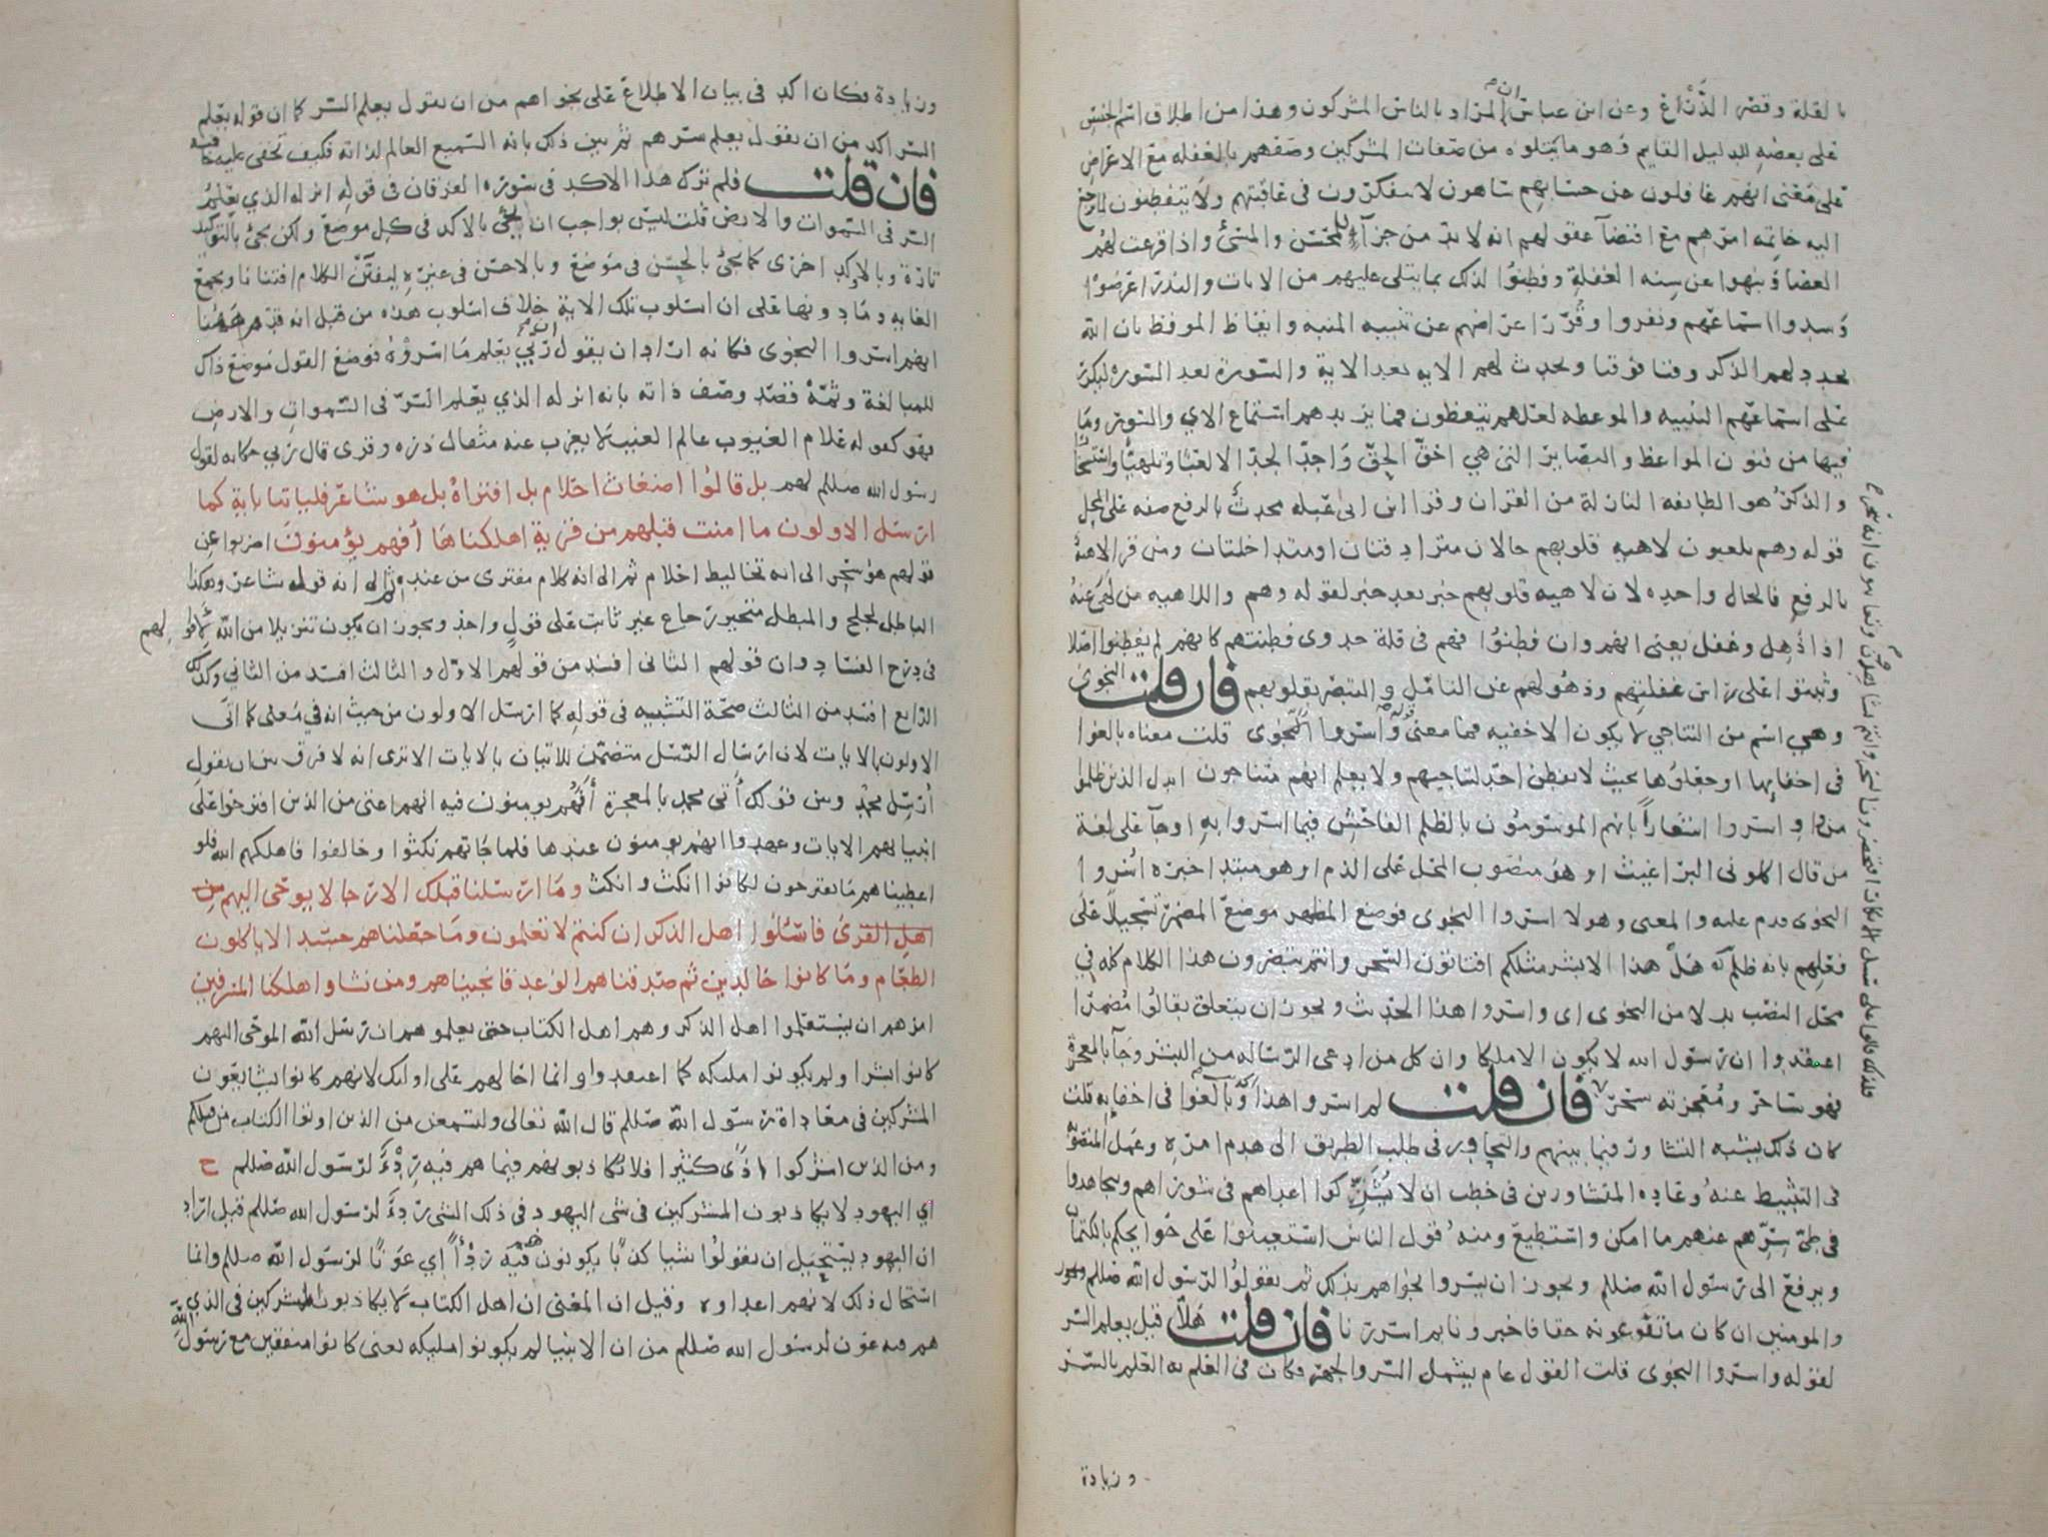 بالقلة وقصر الذراع وعن ابن عباس ان المراد بالناس المشركون وهذا من اطلاق اسم الجنس
على بعضه للدليل القايم وهو ما يتلوه من صفات المشركين وصفهم بالغفله مع الاعراض
على معنى انهم غافلون عن حسابهم ساهون لا يتفكرون في عاقبتهم ولا يتفطنون لما ترجع
اليه خاتمه امرهم مع اقتضآ عقولهم انه لا بد من جزآ للمحسن والمسئ واذا قرعت لهم
العصا ونبهوا عن سنه الغفلة وفطنوا لذلك بما يتلى عليهم من الايات والنذر اعرضوا
وسدوا اسماعهم ونفروا وقرر اعراضهم عن تنبيه المنبه وايقاظ الموقظ بان الله
يجدد لهم الذكر وقتا فوقتا ويحدث لهم الايه بعد الاية والسورة بعد السوره ليكرر
على اسماعهم التنبيه والموعظه لعلهم يتعظون فما يزيدهم استماع الاي والسور وما
فيها من فنون المواعظ والبصاير التي هي احق الحق واجد الجد الا لعبا وتلهيا واستسخارا
والذكر هو الطايفه النازلة من القران وقرا ابن ابي عبله محدث بالرفع صفه على المحل
قوله وهم يلعبون لاهيه قلوبهم حالان مترادفتان او متداخلتان ومن قرا لاهية
بالرفع فالحال واحده لان لاهيه قلوبهم خبر بعد خبر لقوله وهم واللاهيه من لهى عنه
اذا ذهل وغفل يعني انهم وان فطنوا فهم في قلة جدوى فطنتهم كانهم لم يفطنوا اصلا
وثبتوا على راس غفلتهم وذهولهم عن التامل والتبصر بقلوبهم فان قلت النجوى
وهي اسم من التناجي لا يكون الا خفيه فما معنى قوله واسروا النجوى قلت معناه بالغوا
في اخفايها او جعلوها بحيث لا يفطن احد لتناجيهم ولا يعلم انهم متناجون ابدل الذين ظلموا
من واو اسروا اشعارا بانهم الموسومون بالظلم الفاحش فيما اسروا به او جآ على لغة
من قال اكلوني البراغيث او هو منصوب المحل على الذم او هو مبتدا خبره اسروا
النجوى قدم عليه والمعنى وهولا اسروا النجوى فوضع المظهر موضع المضمر تسجيلا على
فعلهم بانه ظلم هل هذا الا بشر مثلكم افتاتون السحر وانتم تبصرون هذا الكلام كله في
محل النصب بدلا من النجوى اي واسروا هذا الحديث ويجوز ان يتعلق بقالوا مضمرا
اعتقدوا ان رسول الله لا يكون الا ملكا وان كل من ادعى الرساله من البشر وجآ بالمعجزة
فهو ساحر ومعجزته سحر فان قلت لم اسروا هذا وبالغوا في اخفايه قلت
كان ذلك يشبه التشاور فيما بينهم والتحاور في طلب الطريق الى هدم امره وعمل المنصوبة
في التثبيط عنه وعاده المتشاورين في خطب ان لا يشركوا اعداهم في شوراهم ويجاهدوا
في طي سرهم عنهم ما امكن واستطيع ومنه قول الناس استعينوا على حوايجكم بالكتمان
ويرفع الى رسول الله صللم ويجوز ان يسروا نجواهم بذلك ثم يقولوا لرسول الله صللم
والمومنين ان كان ما تدعونه حقا فاخبرونا بم اسررنا فان قلت هلا قيل يعلم السر
لقوله واسروا النجوى قلت القول عام يشمل السر والجهر فكان في العلم به العلم بالسر
وزيادة
وزيادة فكان اكد في بيان الاطلاع على نجواهم من ان يقول يعلم السر كما ان قوله يعلم
السر اكد من ان يقول يعلم سرهم ثم بين ذلك بانه السميع العالم لذاته فكيف تخفى عليه خافيه
فان قلت فلم ترك هذا الاكد في سوره الفرقان في قوله انزله الذي يعلم
السر في السموات والارض قلت ليس بواجب ان يجئ بالاكد في كل موضع ولكن يجئ بالتوكيد
تارة وبالاوكد اخرى كما يجئ بالحسن في موضع وبالاحسن في غيره ليفتن الكلام افتنانا ويجمع
الغايه وما دونها على ان اسلوب تلك الاية خلاف اسلوب هذه من قبل انه قدم ههنا
انهم اسروا النجوى فكانه اراد ان يقول ان ربي يعلم ما اسروه فوضع القول موضع ذلك
للمبالغة وثمه قصد وصف ذاته بانه انزله الذي يعلم السر في السموات والارض
فهو كقوله علام الغيوب عالم الغيب لا يعزب عنه مثقال ذره وقرى قال ربي حكايه لقول
رسول الله صللم لهم بل قالوا اضغاث احلام بل افتراه بل هو شاعر فلياتنا باية كما
ارسل الاولون ما امنت قبلهم من قرية اهلكناها أفهم يؤمنون اضربوا عن
قولهم هو سحر الى انه تخاليط احلام ثم الى انه كلام مفترى من عنده ثم الى انه قول شاعر وهكذا
الباطل لجلج والمبطل متحير رجاع غير ثابت على قول واحد ويجوز ان يكون تنزيلا من الله لاقوالهم
في درج الفساد وان قولهم الثاني افسد من قولهم الاول والثالث افسد من الثاني وكذلك
الرابع افسد من الثالث صحة التشبيه في قوله كما ارسل الاولون من حيث انه في معنى كما اتى
الاولون بالايات لان ارسال الرسل متضمن للاتيان بالايات الا ترى انه لا فرق بين ان يقول
أرسل محمد وبين قولك أتى محمد بالمعجزة أفهم يومنون فيه انهم اعتى من الذين اقترحوا على
انبيايهم الايات وعهدوا انهم يومنون عندها فلما جاتهم نكثوا وخالفوا فاهلكهم الله فلو
اعطيناهم ما يقترحون لكانوا انكث وانكث وما ارسلنا قبلك الا رجالا يوحى اليهم من
اهل القرى فاسئلوا اهل الذكر ان كنتم لا تعلمون وما جعلناهم جسدا لا ياكلون
الطعام وما كانوا خالدين ثم صدقناهم الوعد فانجيناهم ومن نشاء واهلكنا المسرفين
امرهم ان يستعلموا اهل الذكر وهم اهل الكتاب حتى يعلموهم ان رسل الله الموحى اليهم
كانوا بشرا ولم يكونوا مليكه كما اعتقدوا وانما احالهم على اوليك لانهم كانوا يشايعون
المشركين في معاداة رسول الله صللم قال الله تعالى ولتسمعن من الذين اوتوا الكتاب من قبلكم
ومن الذين اشركوا اذى كثيرا فلا يكاذبونهم فيما هم فيه ردء لرسول الله صللم ح
اي اليهود لا يكاذبون المشركين في شي اليهود في ذلك الشي ردء لرسول الله صللم قيل اراد
ان اليهود يستحيل ان يقولوا شيا كذبا يكونون فيه ردأ اي عونا لرسول الله صللم وانما
استحال ذلك لانهم اعداوه وقيل ان المعنى ان اهل الكتاب لا يكاذبون المشركين في الذي
هم فيه عون لرسول الله صللم من ان الانبيا لم يكونوا مليكه يعني كانوا متفقين مع رسول الله